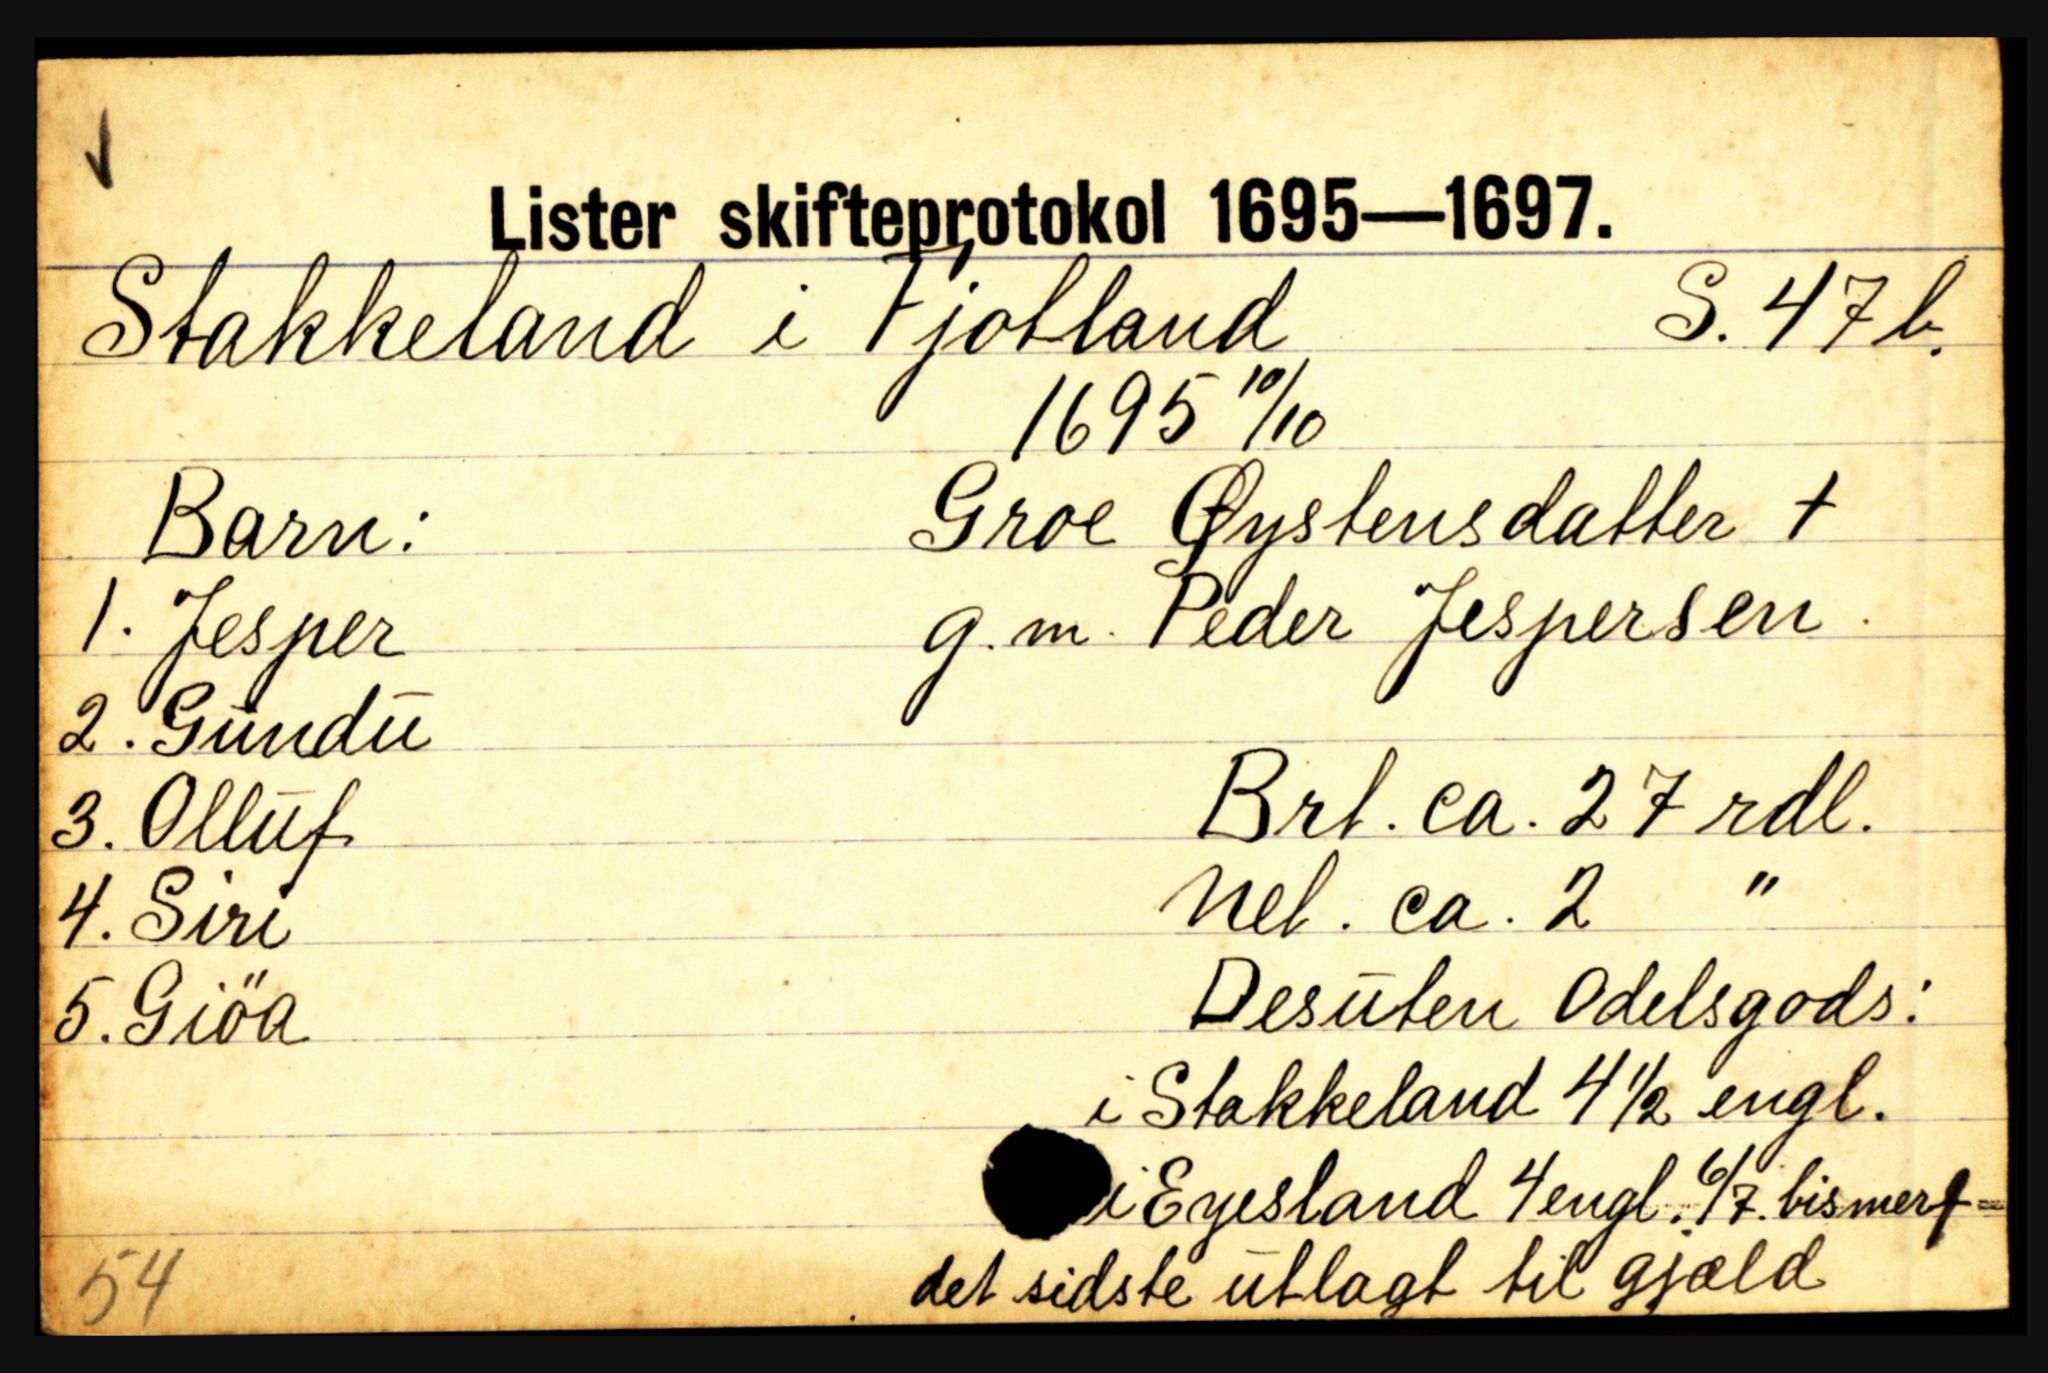 Lister skifteprotokol 1695—1697.
Stakkeland i Fjotland S. 47 b.
1695 10/10
Barn: Groe Øystensdatter †
1. Jesper g.m. Peder Jespersen.
2. Gundū
3. Ollūf Brt. ca. 27 rdl.
4. Siri Net. ca. 2 "
5. Giöa Desūten Odelsgods:
i Stakkeland 4 1/2 engl.
i Eyesland 4 engl. 6/7 bismerp =
54 det sidste ūtlagt til gjæld